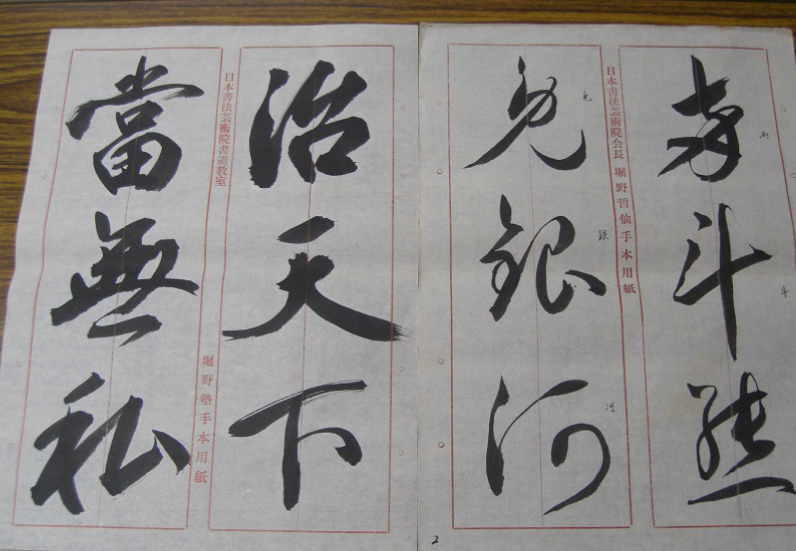 斗
日本書法芸術院会長 堀野哲仙手本用紙
斗
銀河
銀
河
2
治天下
日本書法芸術院書道教室
堀野塾手本用紙
當無私